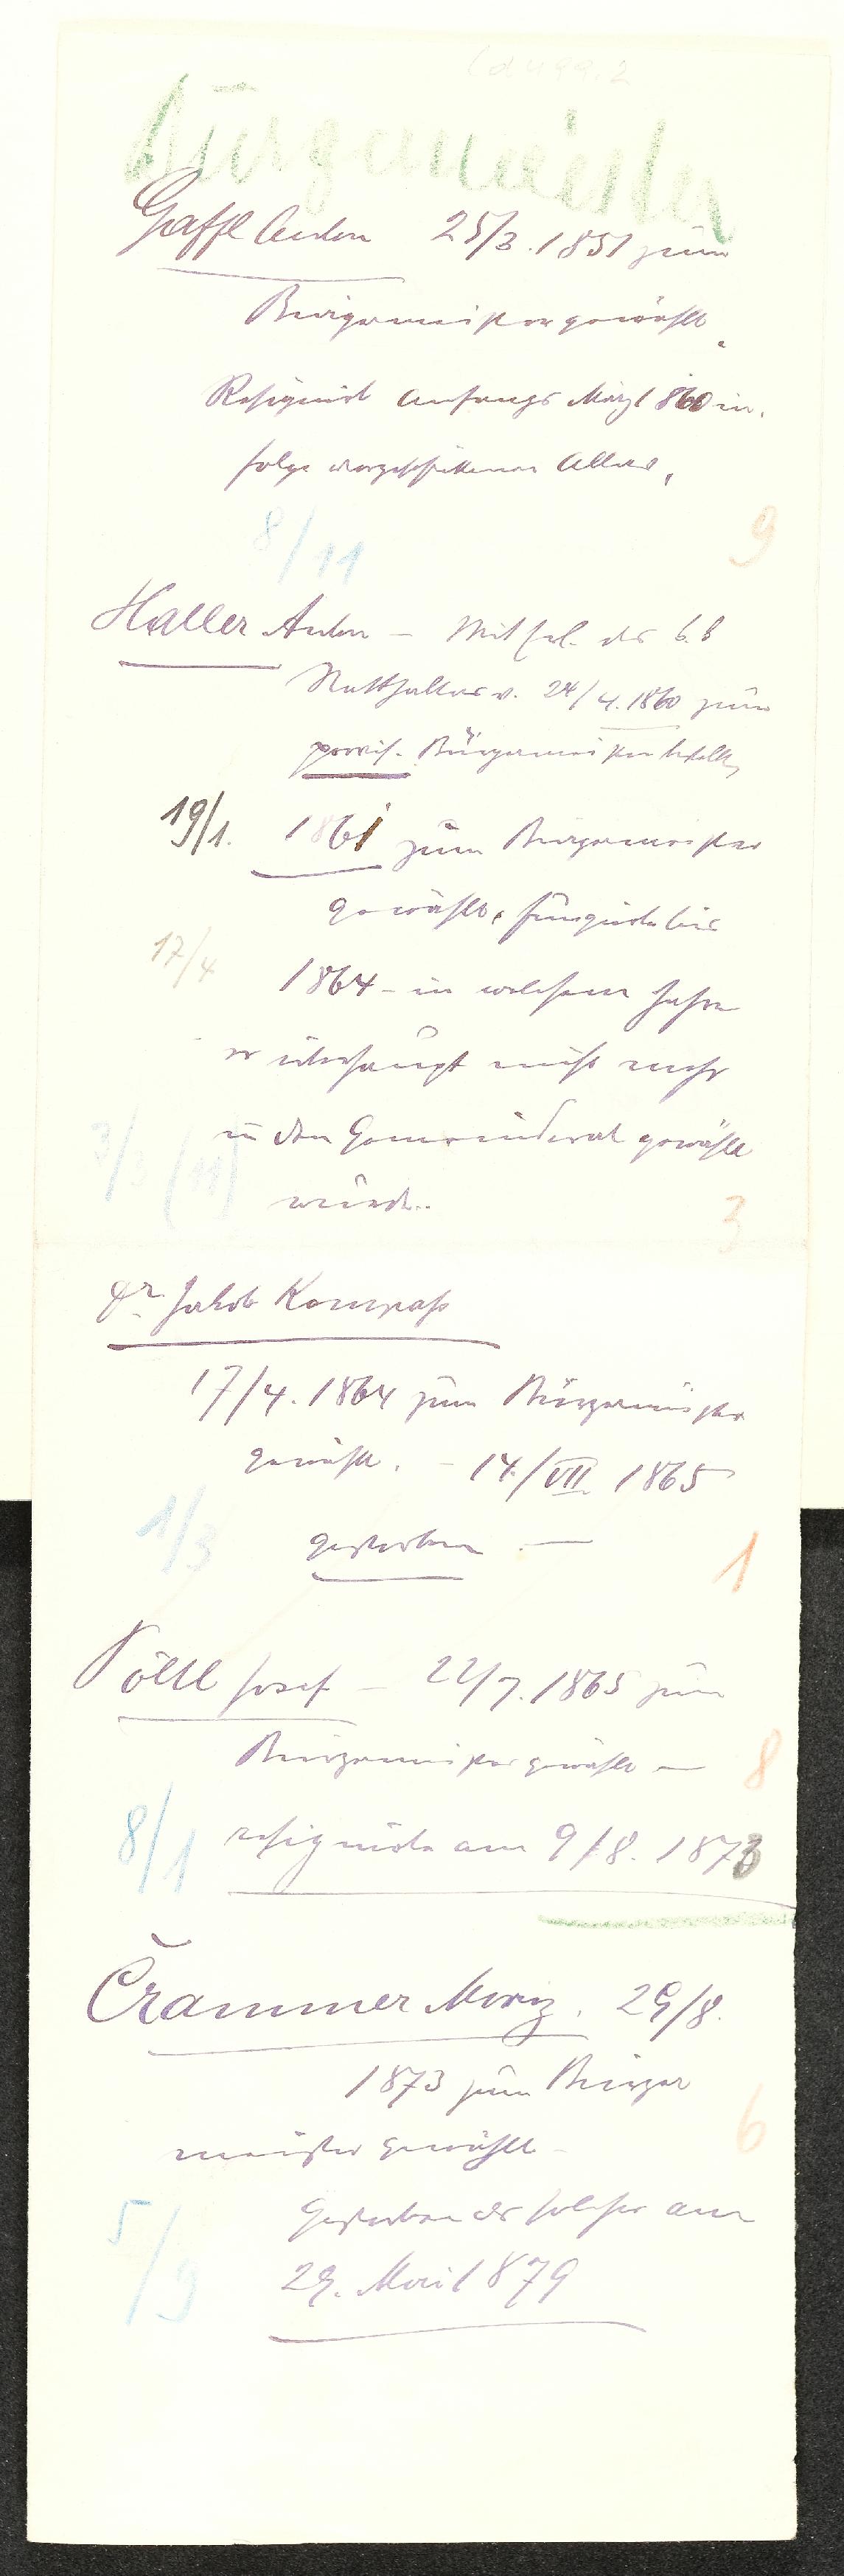 Bürgermeister
Gaffl Anton 25/3. 1851 zum
Bürgermeister gewählt.
Resignirt Anfangs März 1860 in
folge vorgeschrittenen Alters.
8/11 9
Haller Anton – Mit Erl. des k. k
Statthalters v. 24/4. 1860 zum
provis. Bürgermeister bestellt,
19/1. 1861 zum Bürgermeister
gewählt, fungirte bis
17/4 1864 – in welchem Jahre
er überhaupt nicht mehr
in den Gemeinderat gewählt
3/3 (11) wurde. 3
Dr. Jakob Kompaß
17/4. 1864 zum Bürgermeister
gewählt. – 14./VII. 1865
1/3 gestorben. – 1
Pöltl Josef – 22/7. 1865 zum
Bürgermeister gewählt – 8
8/1 resignirte am 9/8. 1873
Črammer Moriz. 29/8.
1873 zum Bürger
meister gewählt – 6
5/9 Gestorben als solcher am
29. Mai 1879